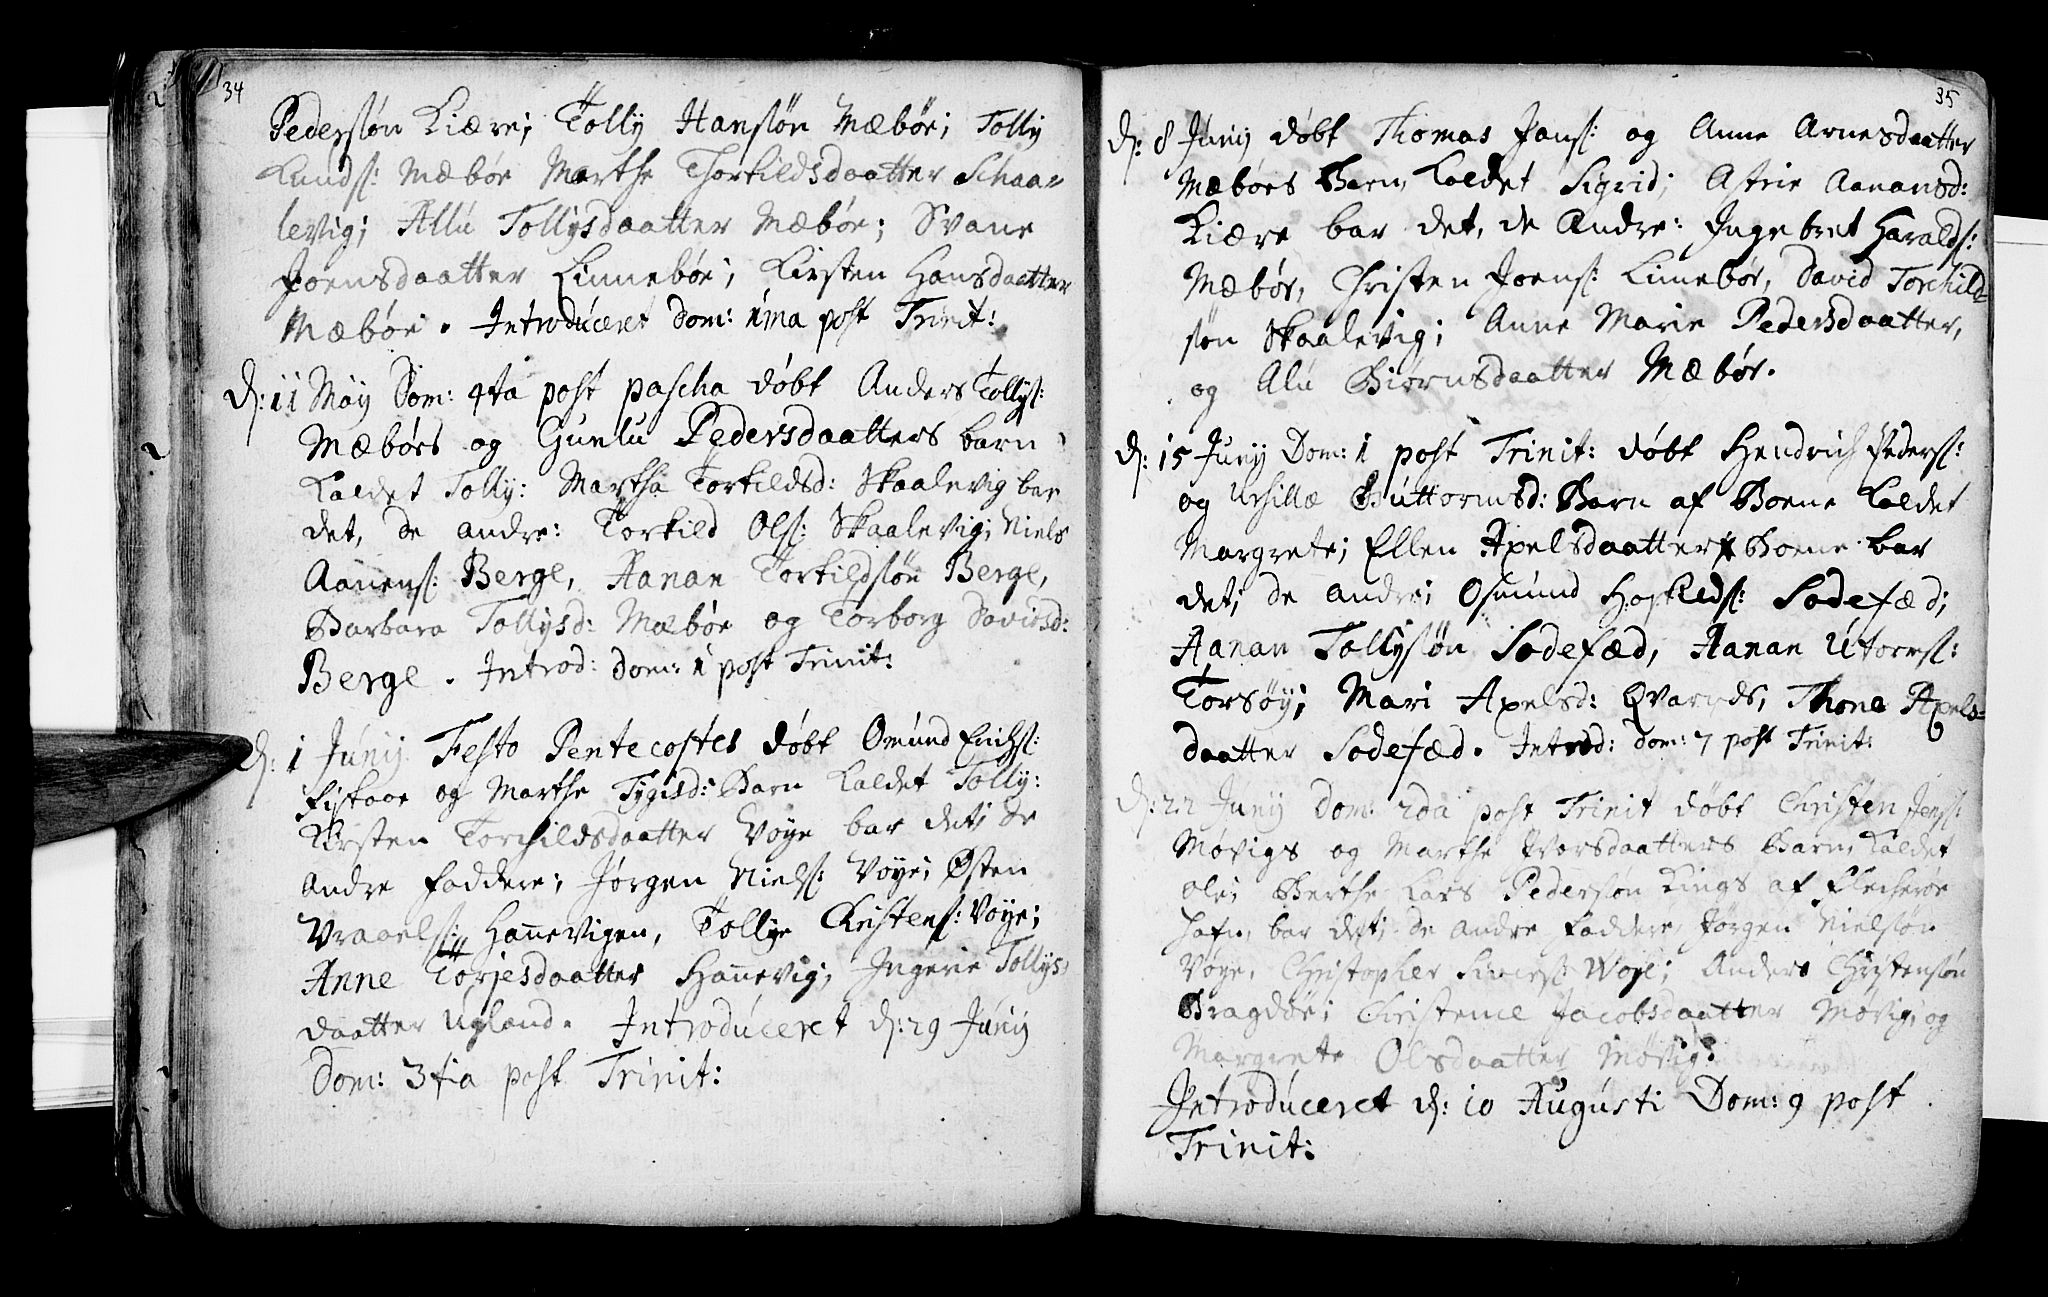 34
Pedersøn Kiære; Tolly Hansøn Mæbøe; Tolly
Lunds: Mæbøe Marthe Thorkildsdaatter Schaa-
levig; Allu Tollysdaatter Mæbøe; Svane
Joensdaatter Linnebøe; Kirsten Hansdaatter
Mæbøe. Introduceret Dom: 1ma post Trinit:
d: 11 Maÿ Dom: 4ta post pascha døbt Anders Tollys:
Mæbøes og Gunlu Pedersdaatters barn
Kaldet Tolly: Martha Torkildsd: Skaalevig bar
det, de andre: Torkild Ols: Skaalevig; Niels
Aanens: Berge, Aanan Torkildsøn Berge,
Barbara Tollysd: Mæbøe og Torborg Davidsd:
Berge. Introd: Dom: 1 post Trinit:
d: 1 Junÿ Festo Pentecostes døbt Omund Erichs:
Fiskaae og Marthe Tygisd: Barn Kaldet Tolly:
Kirsten Torchildsdaatter Vøye bar det; de
andre Faddere; Jørgen Niels: Vøye; Østen
Vraaels: Hannevigen, Tollye Christens: Vøye;
Anne Torjesdaatter Hannevig; Ingerie Tollys-
daatter Ugland. Introduceret d: 29 Junÿ
Dom: 3tia post Trinit:
35
d: 8 Junÿ døbt Thomas Jans: og Anne Arnesdaatter
Mæbøes Barn, Kaldet Sigrid; Astrie Aanansd:
Kiære bar det, de Andre: Ingebret Haralds:
Mæbøe, Christen Joens: Linnebøe, David Torchild-
søn Skaalevig; Anne Marie Pedersdaatter,
og Alu Biørnsdaatter Mæbøe.
d: 15 Junÿ Dom: 1 post Trinit: døbt Hendrich Peders:
og Ursillæ Guttormsd: Barn af Boene Kaldet
Margrete; Ellen Axelsdaatter Boene bar
det; de andre; Osmund Hoskilds: Sodefæd;
Aanan Tollysøn Sodefæd, Aanan
Torsøÿ; Mari Axelsd: Qvarnds, Thone Axels-
daatter Sodefæd. Introd: Dom: 7 post Trinit:
d: 22 Junÿ Dom: 2da post Trinit døbt Christen Jens:
Møvigs og Marthe Ivorsdaatters Barn, Kaldet
Ole; Berthe Lars Pedersøn Kings af Flecherøe
Hafn, bar det; de andre Faddere, Jørgen Nielsøn
Vøye, Christopher Woye; Anders Christensøn
Bragdøe; Christence Jacobsdaatter Møvig; og
Margrete Olsdaatter Møvig.
Introduceret d: 10 Augusti Dom: 9 post
Trinit: